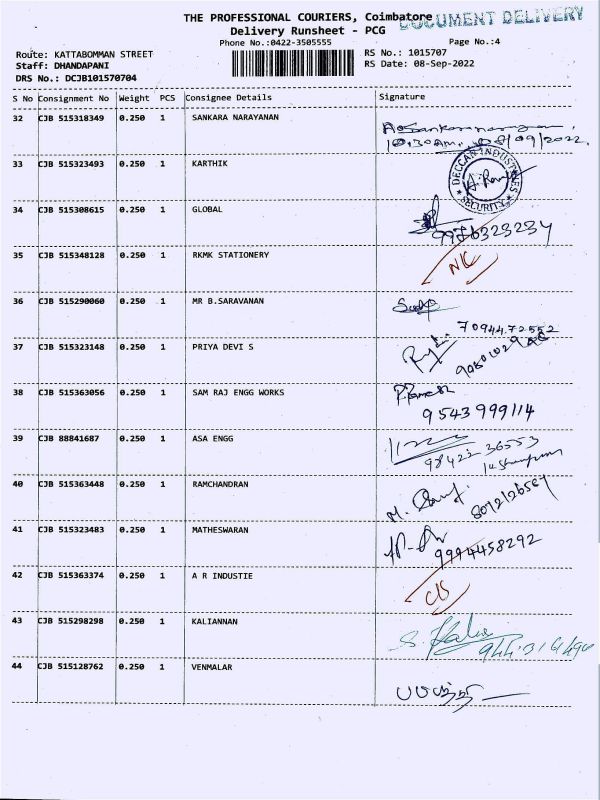 THE PROFESSIONAL COURIERS, Coimbatore
DOCUMENT DELIVERY
Delivery Runsheet - PCG
Phone No.:0422-3505555
Page No.:4
Route: KATTABOMMAN STREET
RS No.: 1015707
Staff: DHANDAPANI
RS Date: 08-Sep-2022
DRS No.: DCJB101570704
S No Consignment No Weight PCS Consignee Details Signature
32 CJB 515318349 0.250 1 SANKARA NARAYANAN
10.30am. 08/09/2022.
33 CJB 515323493 0.250 1 KARTHIK
DECCAN INDUSTRIES
SECURITY
34 CJB 515308615 0.250 1 GLOBAL
9976323234
35 CJB 515348128 0.250 1 RKMK STATIONERY
36 CJB 515290060 0.250 1 MR B.SARAVANAN
7094472552
37 CJB 515323148 0.250 1 PRIYA DEVI S
38 CJB 515363056 0.250 1 SAM RAJ ENGG WORKS
9543999114
39 CJB 88841687 0.250 1 ASA ENGG
98422 36553
40 CJB 515363448 0.250 1 RAMCHANDRAN
41 CJB 515323483 0.250 1 MATHESWARAN
9994458292
42 CJB 515363374 0.250 1 A R INDUSTIE
43 CJB 515298298 0.250 1 KALIANNAN
44 CJB 515128762 0.250 1 VENMALAR